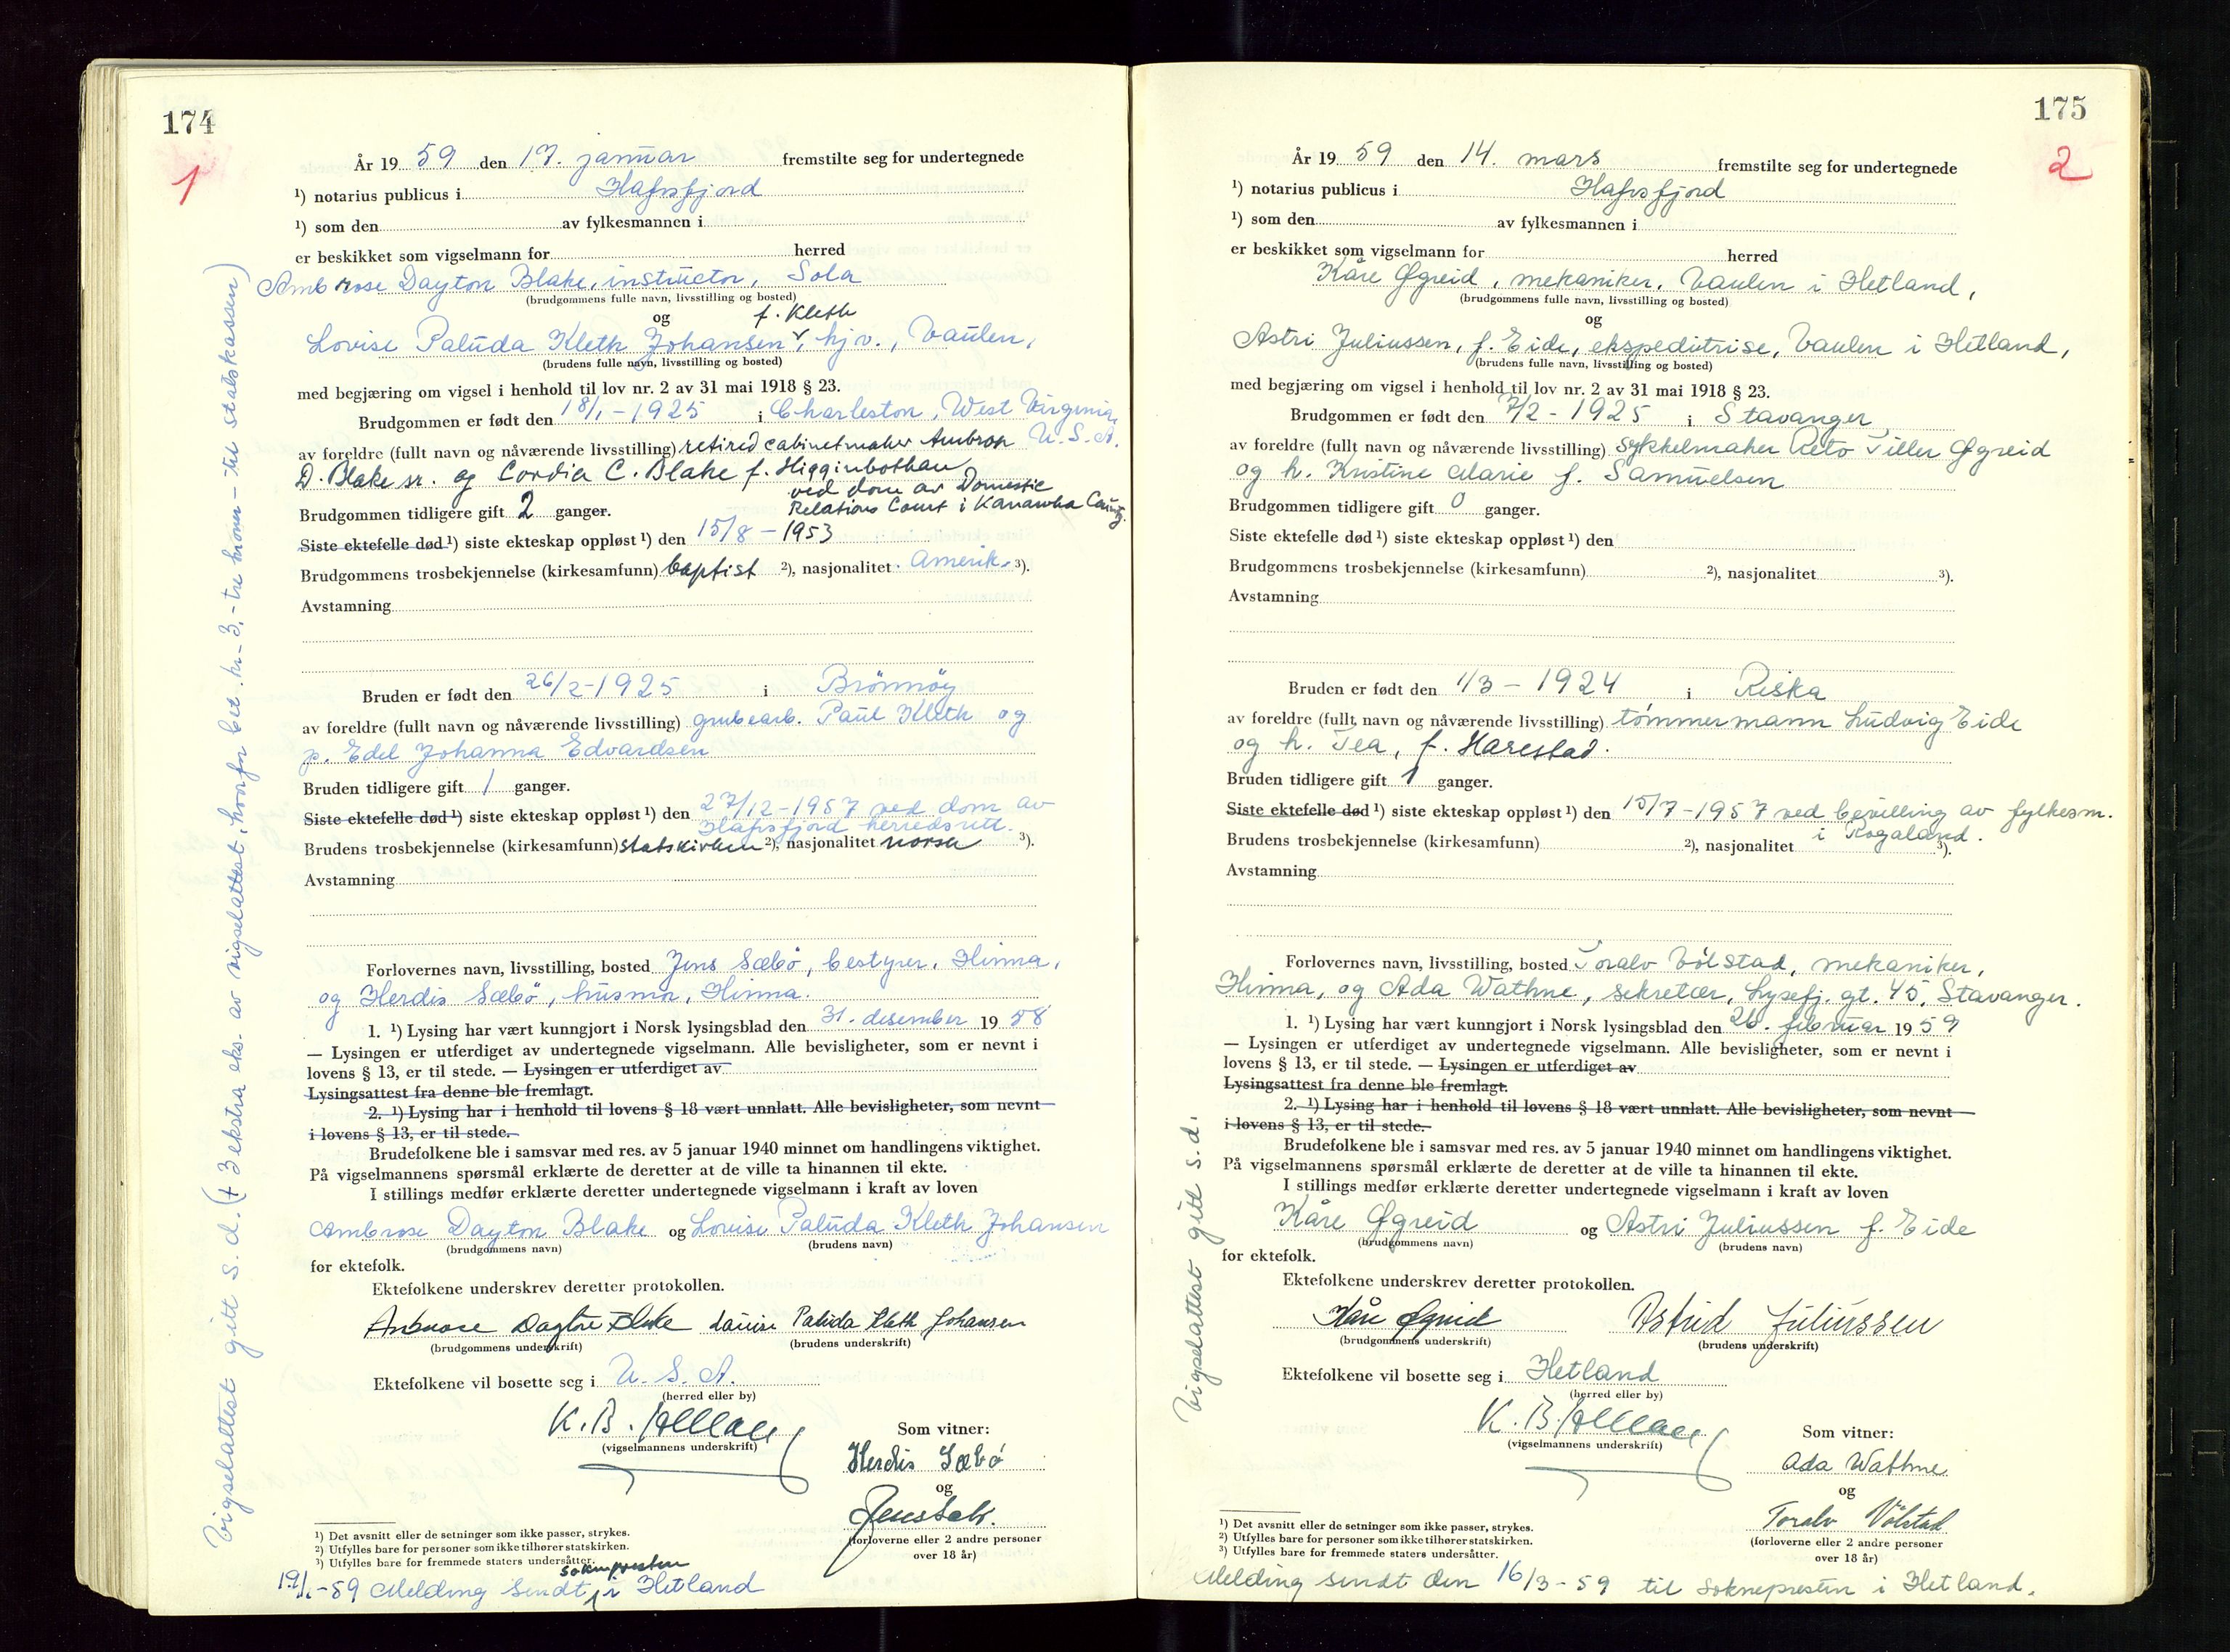 174
1
År 19 59 den 17. januar fremstilte seg for undertegnede
¹) notarius publicus i Hafrsfjord
¹) som den av fylkesmannen i
er beskikket som vigselmann for herred
Ambrose Dayton Blake, instructor, Sola
(brudgommens fulle navn, livsstilling og bosted)
og f. Kleth
Lovise Palüda Kleth Johansen, hjv., Vaulen,
(brudens fulle navn, livsstilling og bosted)
med begjæring om vigsel i henhold til lov nr. 2 av 31 mai 1918 § 23.
Brudgommen er født den 18/1 - 1925 i Charleston, West Virginia,
av foreldre (fullt navn og nåværende livsstilling) retired cabinetmaker Ambrose U.S.A.
D. Blake sr. og Cordia C. Blake f. Higginbotham
ved dom av Domestic
Brudgommen tidligere gift 2 ganger. Relations Court i Kanawha County.
Siste ektefelle død ¹) siste ekteskap oppløst ¹) den 15/8 - 1953
Brudgommens trosbekjennelse (kirkesamfunn) baptist ²), nasjonalitet Amerik. ³).
Avstamning
Bruden er født den 26/2-1925 i Brönnöy
av foreldre (fullt navn og nåværende livsstilling) grubearb. Paul Kleth og
p. Edel Johanna Edvardsen
Bruden tidligere gift 1 ganger.
Siste ektefelle død ¹) siste ekteskap oppløst ¹) den 27/12-1957 ved dom av
Hafrsfjord herredsrett.
Brudens trosbekjennelse (kirkesamfunn) statskirken ²), nasjonalitet norsk ³).
Avstamning
Forlovernes navn, livsstilling, bosted Jens Sæbö, bestyrer, Hinna,
og Herdis Sæbö, husmor, Hinna.
1. ¹) Lysing har vært kunngjort i Norsk lysingsblad den 31. desember 19 58
— Lysingen er utferdiget av undertegnede vigselmann. Alle bevisligheter, som er nevnt i
lovens § 13, er til stede. — Lysingen er utferdiget av
Lysingsattest fra denne ble fremlagt.
2. ¹) Lysing har i henhold til lovens § 18 vært unnlatt. Alle bevisligheter, som nevnt
i lovens § 13, er til stede.
Brudefolkene ble i samsvar med res. av 5 januar 1940 minnet om handlingens viktighet.
På vigselmannens spørsmål erklærte de deretter at de ville ta hinannen til ekte.
I stillings medfør erklærte deretter undertegnede vigselmann i kraft av loven
Ambrose Dayton Blake og Lovise Palüda Kleth Johansen
(brudgommens navn) (brudens navn)
for ektefolk.
Ektefolkene underskrev deretter protokollen.
Ambrose Dayton Blake Louise Paluda Kleth Johansen
(brudgommens underskrift) (brudens underskrift)
Ektefolkene vil bosette seg i U. S. A.
(herred eller by)
K. B.
(vigselmannens underskrift)
Som vitner:
Herdis Sæbö
og
Jens Sæbö.
(forloverne eller 2 andre personer
over 18 år)
¹) Det avsnitt eller de setninger som ikke passer, strykes.
²) Utfylles bare for personer som ikke tilhører statskirken.
³) Utfylles bare for fremmede staters undersåtter.
sokneprestn
19/1-59 Melding sendt i Hetland
Vigselattest gitt s. d. (+ 3 ekstra eks. av vigselattest, hvorfor bet. kr. 3,- tre kroner - til statskassen)
175
2
År 19 59 den 14. mars fremstilte seg for undertegnede
¹) notarius publicus i Hafrsfjord
¹) som den av fylkesmannen i
er beskikket som vigselmann for herred
Kåre Øgreid, mekaniker, Vaulen i Hetland,
(brudgommens fulle navn, livsstilling og bosted)
og
Astri Juliussen, f. Eide, ekspeditrise, Vaulen i Hetland,
(brudens fulle navn, livsstilling og bosted)
med begjæring om vigsel i henhold til lov nr. 2 av 31 mai 1918 § 23.
Brudgommen er født den 7/2 - 1925 i Stavanger,
av foreldre (fullt navn og nåværende livsstilling) sykkelmaker Tiller Øgreid
og h. Kristine Marie f. Samuelsen
Brudgommen tidligere gift 0 ganger.
Siste ektefelle død ¹) siste ekteskap oppløst ¹) den
Brudgommens trosbekjennelse (kirkesamfunn) ²), nasjonalitet ³).
Avstamning
Bruden er født den 1/3 - 1924 i Riska
av foreldre (fullt navn og nåværende livsstilling) tömmermann Ludvig Eide
og h. Tea, f. Harestad.
Bruden tidligere gift 1 ganger.
Siste ektefelle død ¹) siste ekteskap oppløst ¹) den 15/7-1957 ved bevilling av fylkesm.
i Rogaland.
Brudens trosbekjennelse (kirkesamfunn) ²), nasjonalitet ³).
Avstamning
Forlovernes navn, livsstilling, bosted Toralv Völstad, mekaniker,
Hinna, og Ada Wathne, sekretær, Lysefj. gt. 45, Stavanger.
1. ¹) Lysing har vært kunngjort i Norsk lysingsblad den 26. februar 19 59
— Lysingen er utferdiget av undertegnede vigselmann. Alle bevisligheter, som er nevnt i
lovens § 13, er til stede. — Lysingen er utferdiget av
Lysingsattest fra denne ble fremlagt.
2. ¹) Lysing har i henhold til lovens § 18 vært unnlatt. Alle bevisligheter, som nevnt
i lovens § 13, er til stede.
Brudefolkene ble i samsvar med res. av 5 januar 1940 minnet om handlingens viktighet.
På vigselmannens spørsmål erklærte de deretter at de ville ta hinannen til ekte.
I stillings medfør erklærte deretter undertegnede vigselmann i kraft av loven
Kåre Øgreid og Astri Juliussen f. Eide
(brudgommens navn) (brudens navn)
for ektefolk.
Ektefolkene underskrev deretter protokollen.
Kåre Øgreid Astrid Juliussen
(brudgommens underskrift) (brudens underskrift)
Ektefolkene vil bosette seg i Hetland
(herred eller by)
K. B.
(vigselmannens underskrift)
Som vitner:
Ada Wathne
og
Toralv Völstad
(forloverne eller 2 andre personer
over 18 år)
¹) Det avsnitt eller de setninger som ikke passer, strykes.
²) Utfylles bare for personer som ikke tilhører statskirken.
³) Utfylles bare for fremmede staters undersåtter.
Melding sendt den 16/3-59 til sokneprestn i Hetland.
Vigselattest gitt s.d.